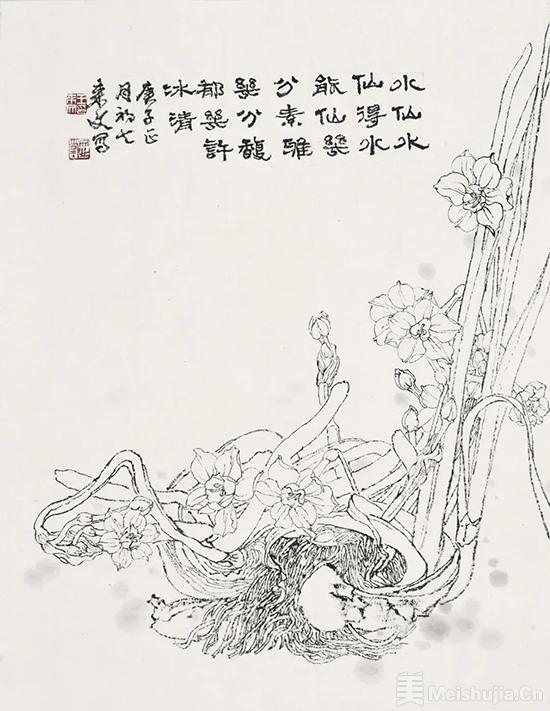 水仙水
仙得水
能仙
分素雖
分馥
都許
冰清
庚子正
月初七
來文寫
美 Meishujia.Cn